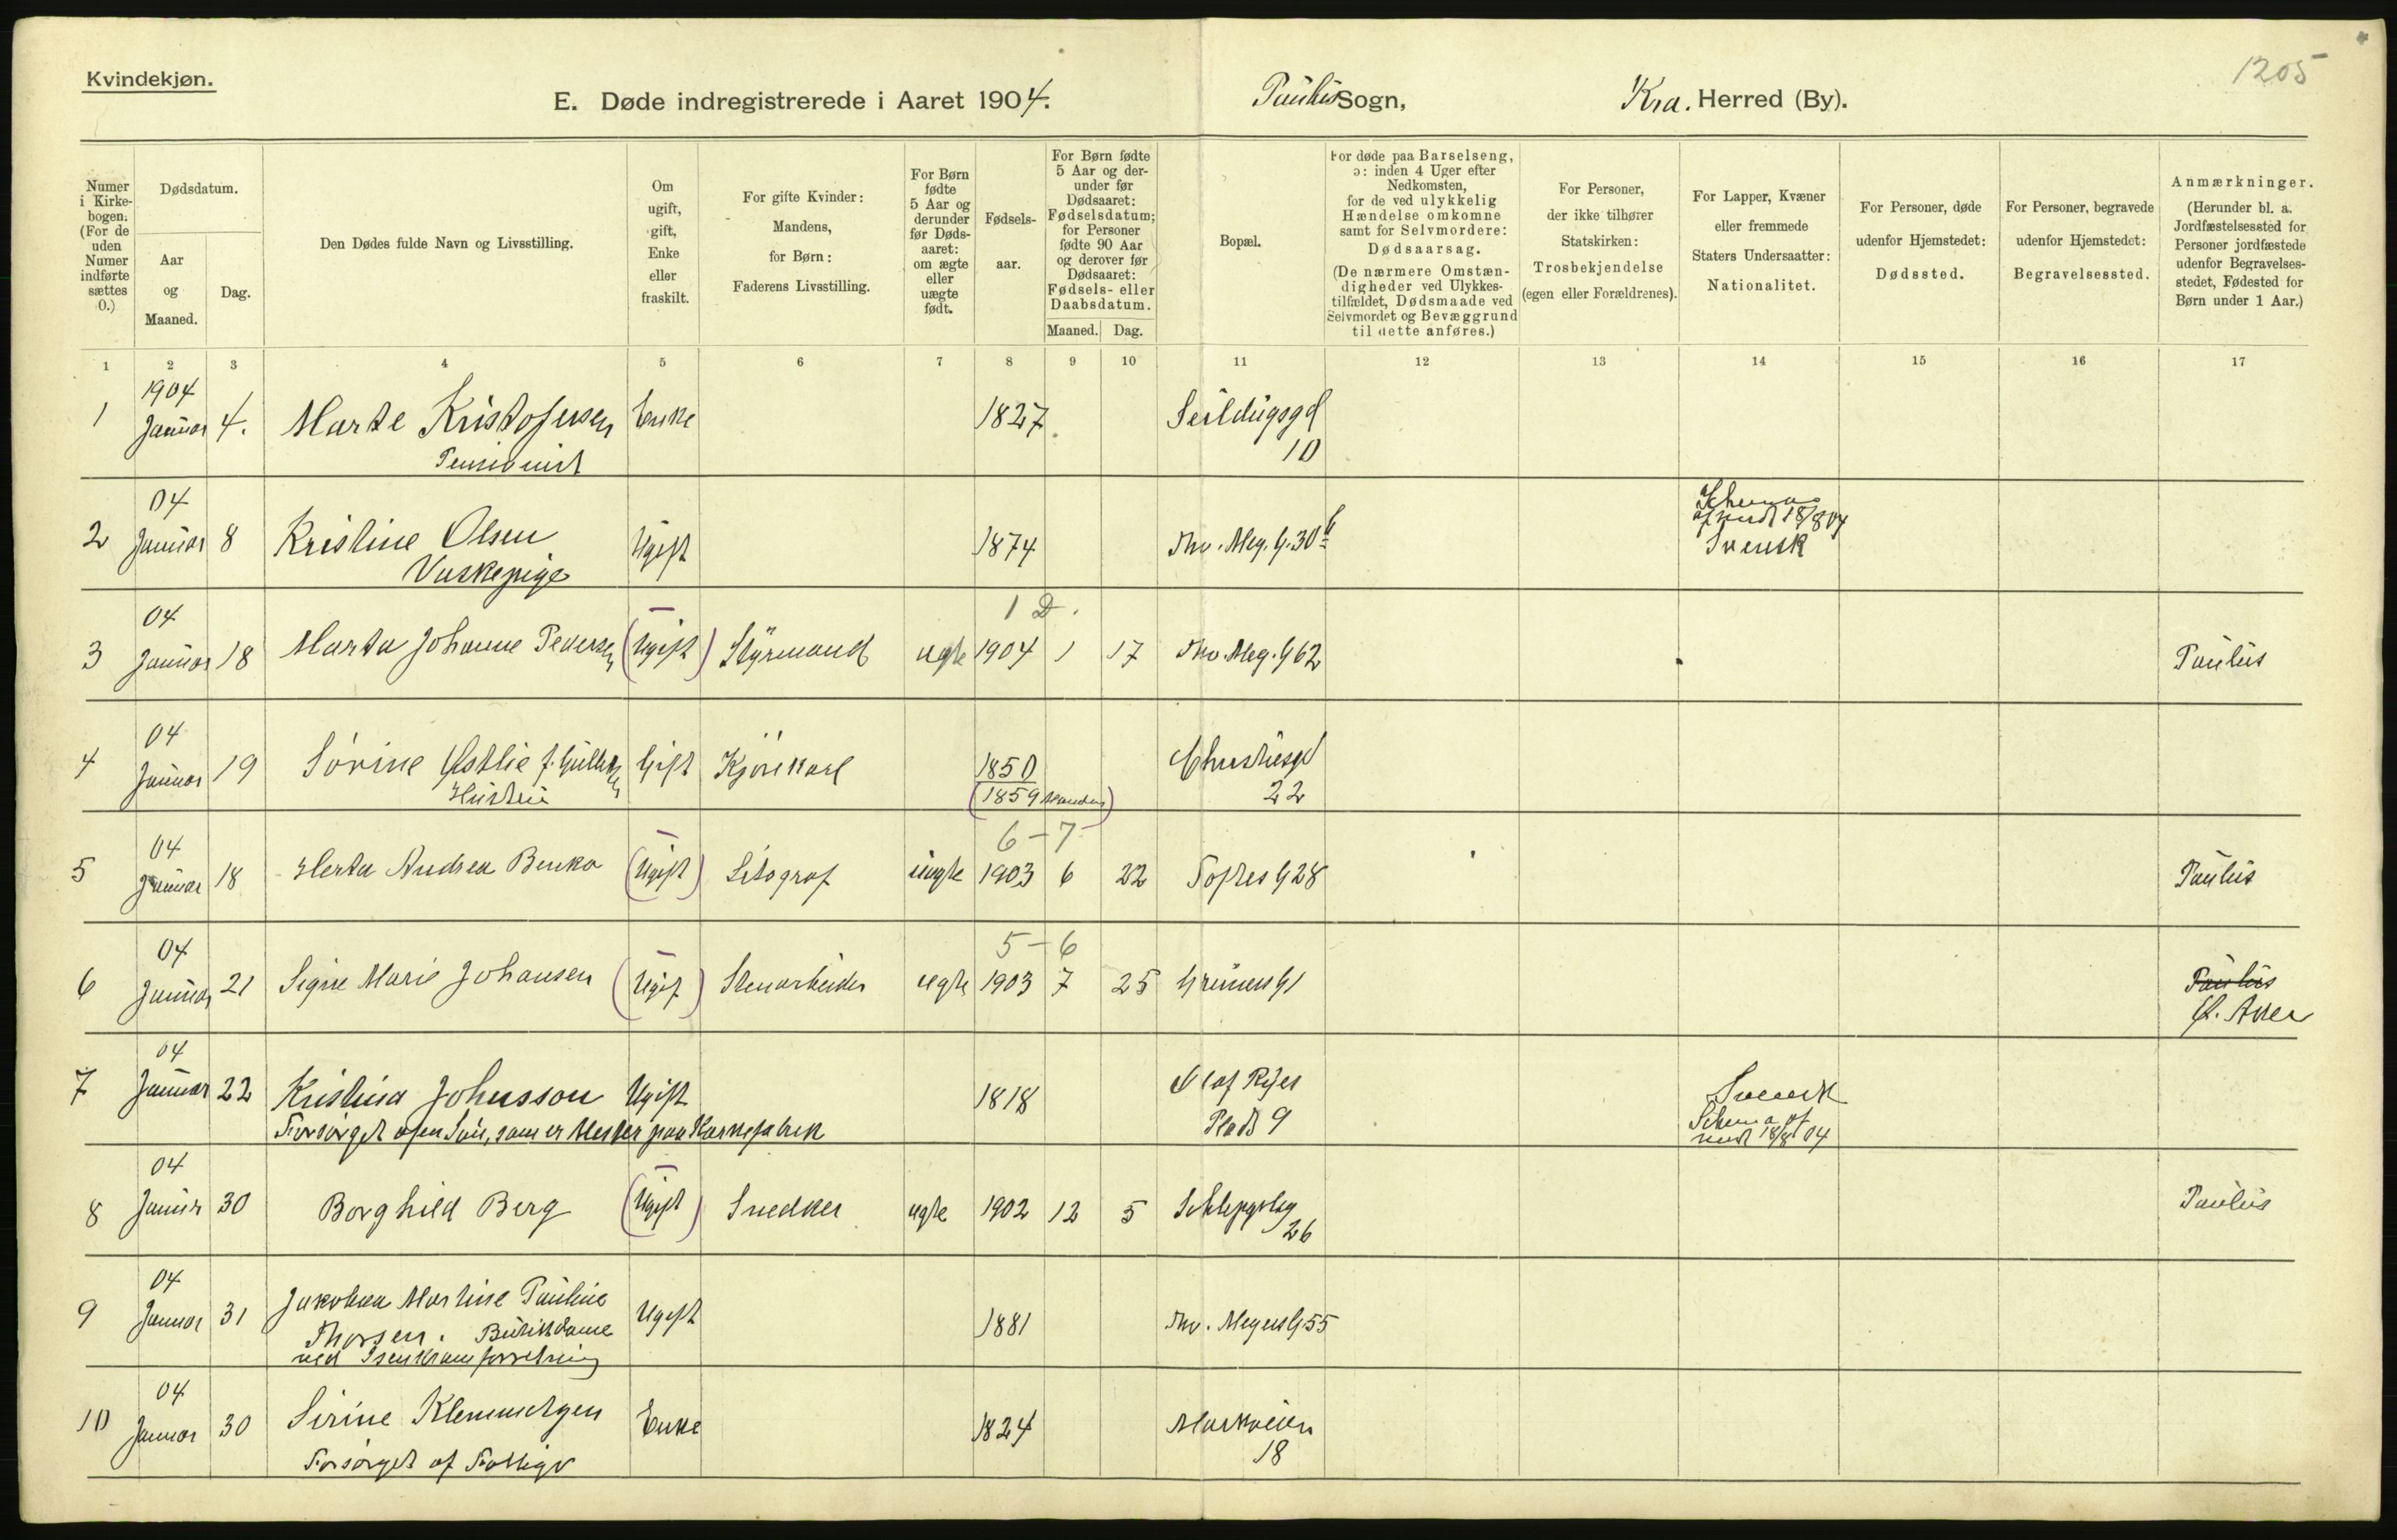 Kvindekjøn.
1205
E. Døde indregistrerede i Aaret 1904.
Paulus Sogn,
Kra. Herred (By).
Numer i Kirkebogen. (For de uden Numer indførte sættes 0.)
Dødsdatum.
Aar og Maaned.
Dag.
Den Dødes fulde Navn og Livsstilling.
Om ugift, gift, Enke eller fraskilt.
For gifte Kvinder: Mandens, for Børn: Faderens Livsstilling.
For Børn fødte 5 Aar og derunder før Dødsaaret: om ægte eller uægte født.
Fødselsaar.
For Børn fødte 5 Aar og derunder før Dødsaaret: Fødselsdatum; for Personer fødte 90 Aar og derover før Dødsaaret: Fødsels- eller Daabsdatum.
Maaned. Dag.
Bopæl.
For døde paa Barselseng, ɔ: inden 4 Uger efter Nedkomsten, for de ved ulykkelig Hændelse omkomne samt for Selvmordere: Dødsaarsag. (De nærmere Omstændigheder ved Ulykkestilfældet, Dødsmaade ved Selvmordet og Bevæggrund til dette anføres.)
For Personer, der ikke tilhører Statskirken: Trosbekjendelse (egen eller Forældrenes).
For Lapper, Kvæner eller fremmede Staters Undersaatter: Nationalitet.
For Personer, døde udenfor Hjemstedet: Dødssted.
For Personer, begravede udenfor Hjemstedet: Begravelsessted.
Anmærkninger. (Herunder bl. a. Jordfæstelsessted for Personer jordfæstede udenfor Begravelsesstedet, Fødested for Børn under 1 Aar.)
1 2 3 4 5 6 7 8 9 10 11 12 13 14 15 16 17
1904
1 Januar 4. Marte Kristofersen Enke 1827 Seildugsgd
Pensionist 10
04 Schema
afsendt 18/8 04
2 Januar 8 Kristine Olsen Ugift 1874 Thv. Mey. G. 30 Svensk
Vaskepige
04 1 D.
3 Januar 18 Marta Johanne Pedersen (Ugift) Styrmand ægte 1904 1 17 Thv. Mey. G 62 Paulus
04
4 Januar 19 Sørine Østlie f. Gulliksen Gift Kjørekarl 1850
Hustru (1859 Manden) 22
04 6-7
5 Januar 18 Herta Andrea Benko (Ugift) Litograf uægte 1903 6 22 Toftes G 28 Paulus
04 5-6
6 Januar 21 Signe Marie Johansen (Ugift) Stenarbeider ægte 1903 7 25 Grüners G 1 Paulus
Ø. Aker
04
7 Januar 22 Kristina Johnsson Ugift 1818 Olaf Ryes Svensk
Forsørget af en Søn, som er Mester paa Korkefabrik Plads 9 Schema af
sendt 18/8 04
04
8 Januar 30 Borghild Berg (Ugift) Snedker ægte 1902 12 5 Schleppegrelsg Paulus
26
04
9 Januar 31 Jakobea Martine Pauline Ugift 1881 Thv. Meyers G 55
Thorsen. Butikdame
ved Isenkramforretning
04
10 Januar 30 Sirine Klemmetsen Enke 1824 Markveien
Forsørget af Fattigv 18